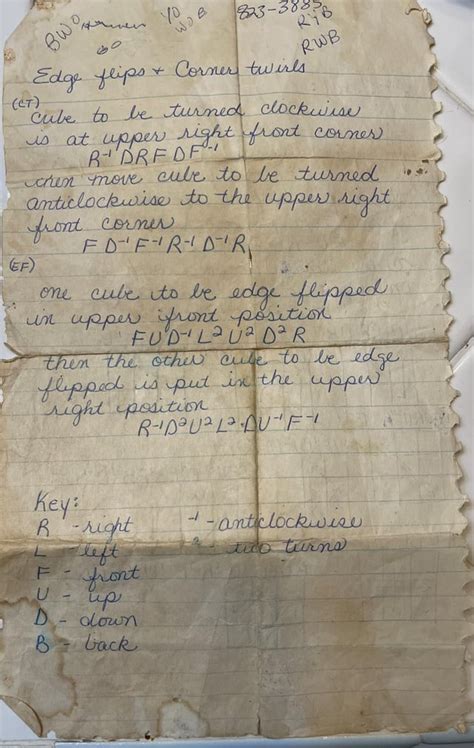 BWO
YO
WOB
823-3885
RYB
RWB
Edge flips + Corner twirls
(CT)
cube to be turned clockwise
is at upper right front corner
R⁻¹DRFDF⁻¹
then move cube to be turned
anticlockwise to the upper right
front corner
FD⁻¹F⁻¹R⁻¹D⁻¹R
(EF)
one cube to be edge flipped
in upper front position
FUD⁻¹L²U²D²R
then the other cube to be edge
flipped is put in the upper
right position
R⁻¹D²U²L²·DU⁻¹F⁻¹
Key:
R - right ⁻¹ - anticlockwise
L - left ² - two turns
F - front
U - up
D - down
B - back